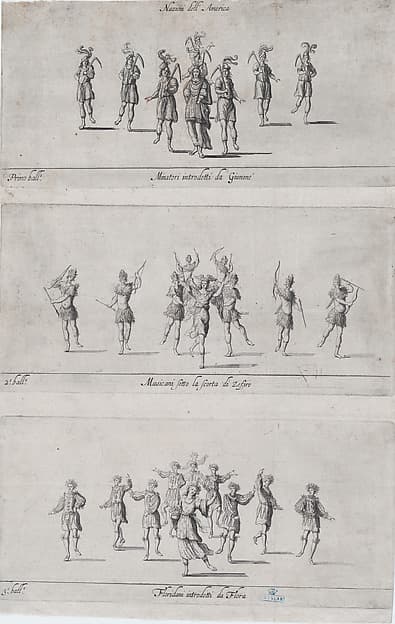 Nazioni dell' America
Primo ball.º
Minatori introdotti da Giunone
2.º ball.º
Messicani sotto la scorta di Zefiro
3.º ball.º
Floridani introdotti da Flora